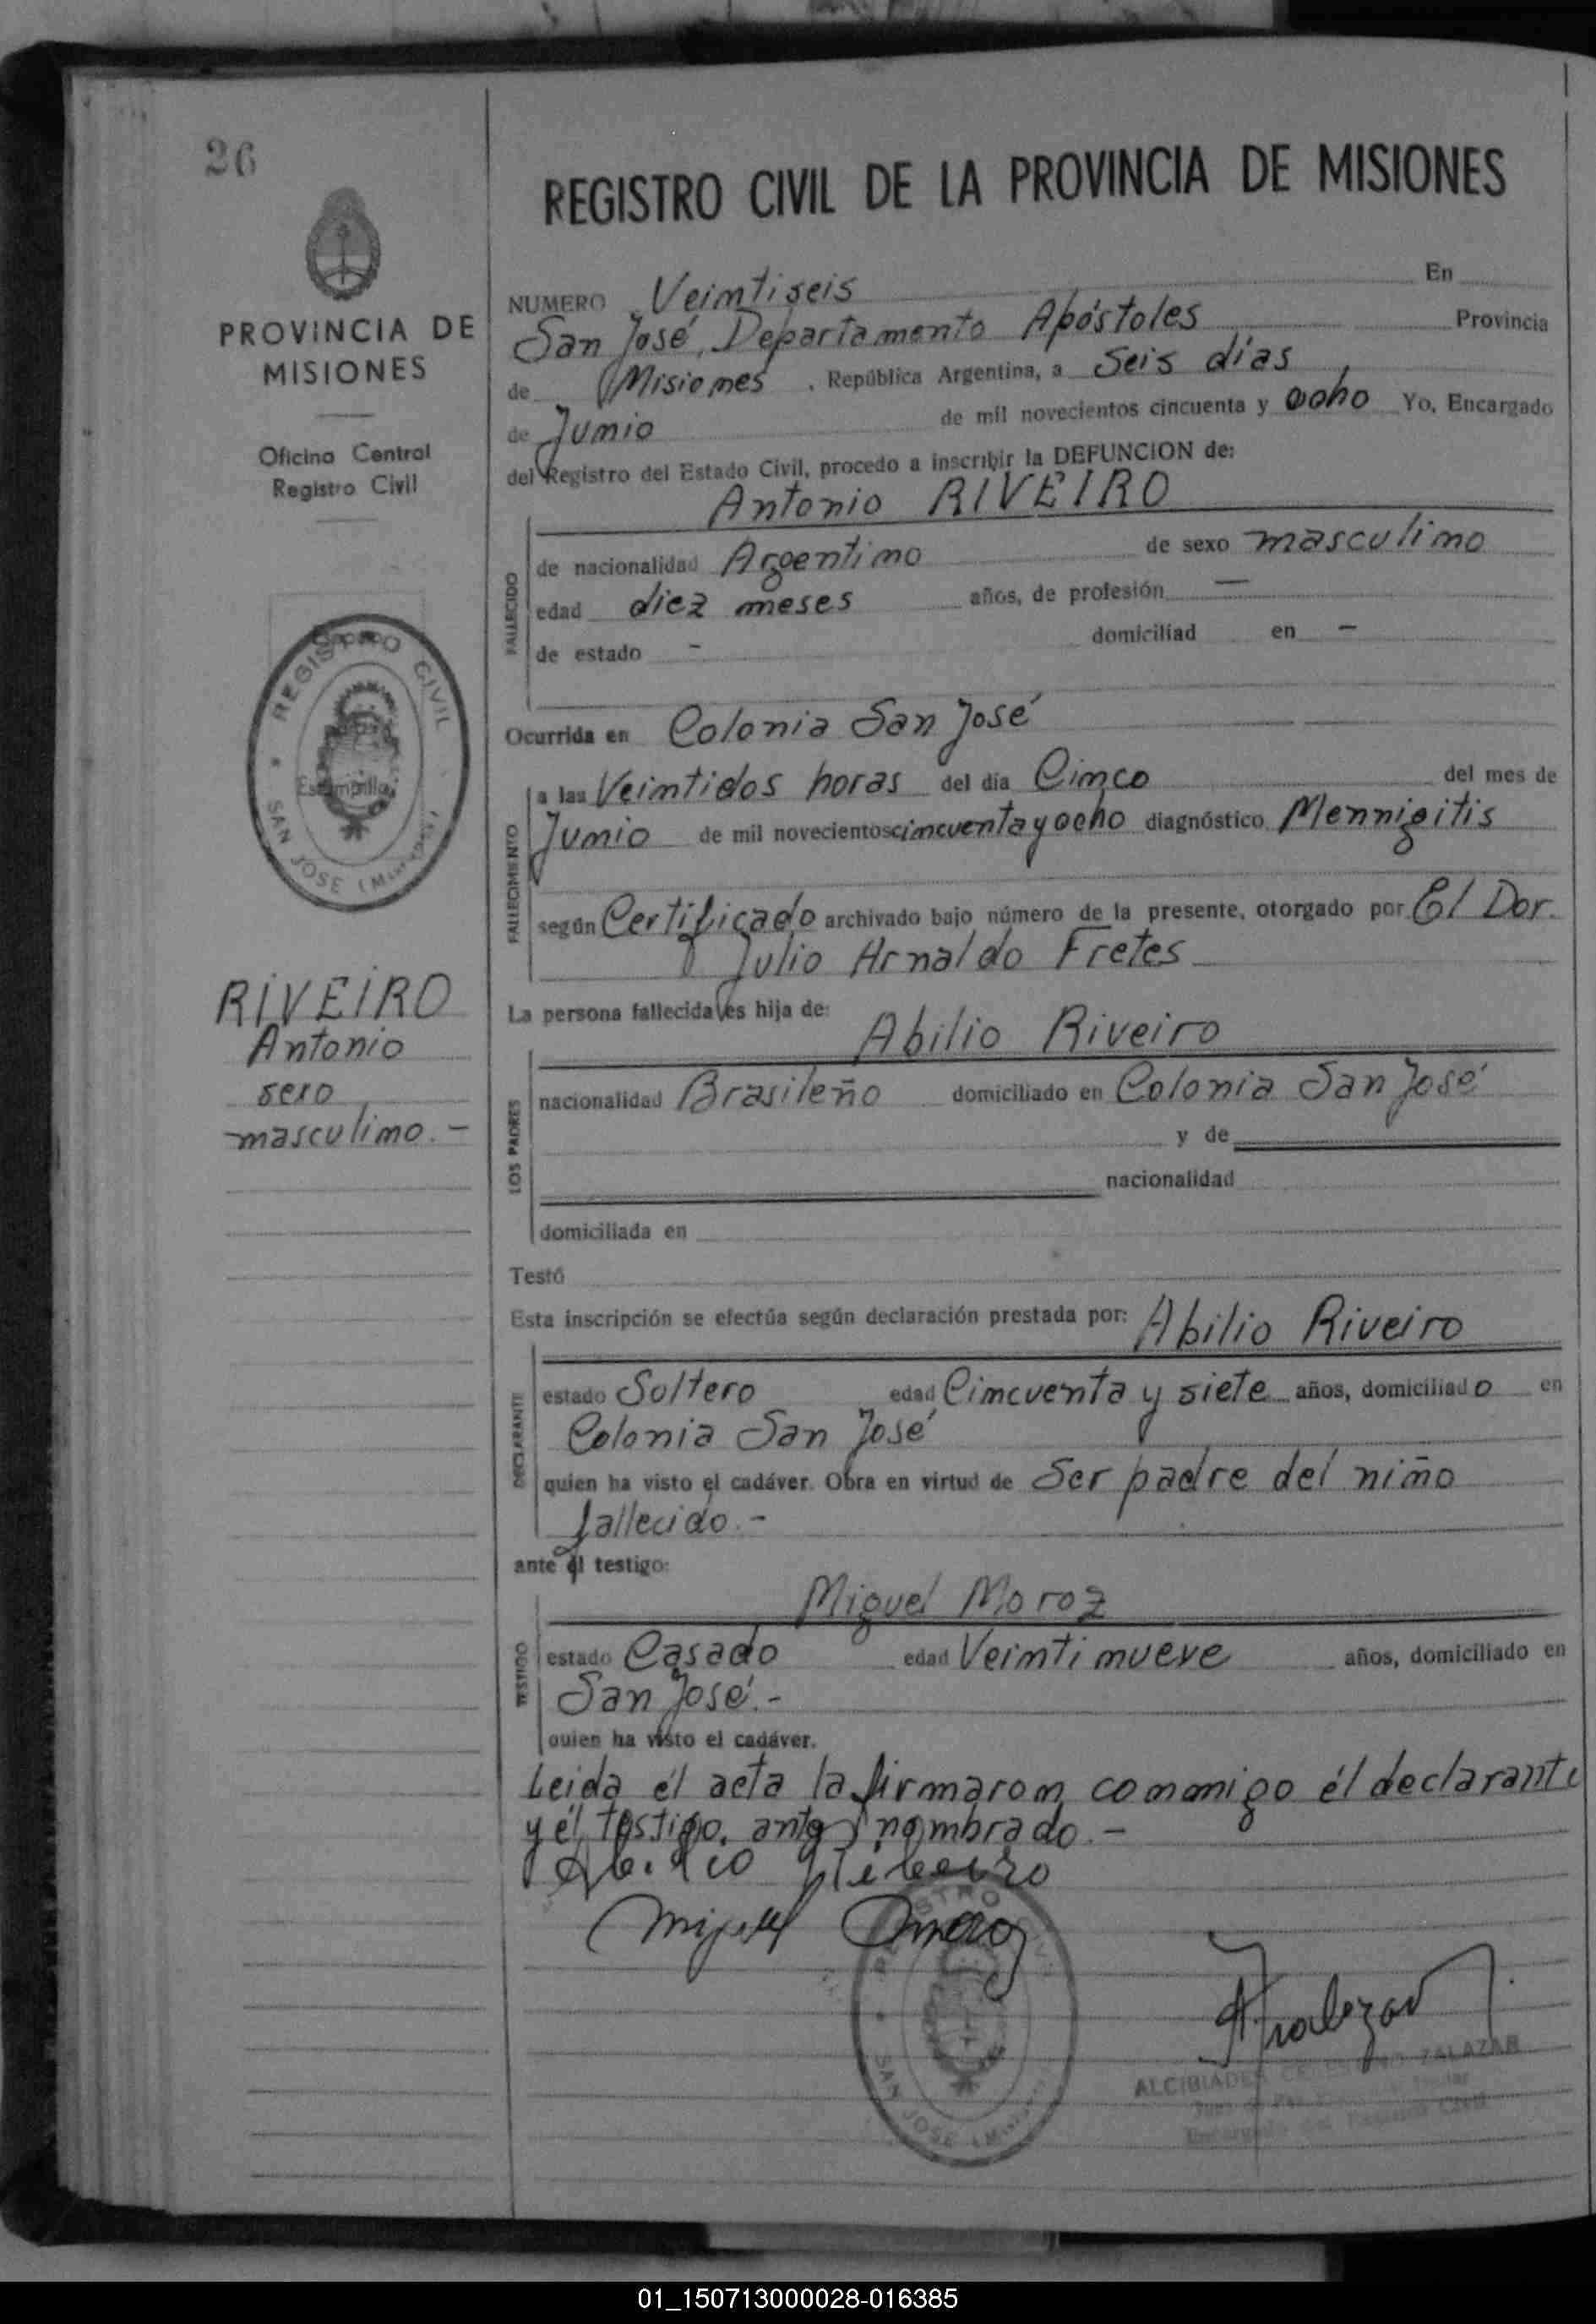 26
PROVINCIA DE
MISIONES
Oficina Central
Registro Civil
REGISTRO CIVIL
Estampilla
SAN JOSE (Misiones)
RIVEIRO
Antonio
sexo
masculino.-
REGISTRO CIVIL DE LA PROVINCIA DE MISIONES
NUMERO Veintiseis En
San José, Departamento Apóstoles Provincia
de Misiones , República Argentina, a Seis días
de Junio de mil novecientos cincuenta y ocho Yo, Encargado
del Registro del Estado Civil, procedo a inscribir la DEFUNCION de:
Antonio RIVEIRO
FALLECIDO
de nacionalidad Argentino de sexo masculino
edad diez meses años, de profesión —
de estado - domiciliad en -
Ocurrida en Colonia San José
FALLECIMIENTO
a las Veintidos horas del día Cinco del mes de
Junio de mil novecientos cincuenta y ocho diagnóstico Mennigitis
según Certificado archivado bajo número de la presente, otorgado por El Dor.
Julio Arnaldo Fretes
La persona fallecida es hija de:
Abilio Riveiro
LOS PADRES
nacionalidad Brasileño domiciliado en Colonia San José
y de
nacionalidad
domiciliada en
Testó
Esta inscripción se efectúa según declaración prestada por: Abilio Riveiro
DECLARANTE
estado Soltero edad Cincuenta y siete años, domiciliado en
Colonia San José
quien ha visto el cadáver. Obra en virtud de Ser padre del niño
fallecido.-
ante el testigo:
Miguel Moroz
TESTIGO
estado Casado edad Veintinueve años, domiciliado en
San José.-
quien ha visto el cadáver.
Leida él acta la firmaron conmigo él declarante
y él testigo, antes nombrado.-
Abilio Ribeiro
Miguel Moroz
SAN JOSE
ALCIBIADES ZALAZAR
Encargado del Registro Civil
01_150713000028-016385